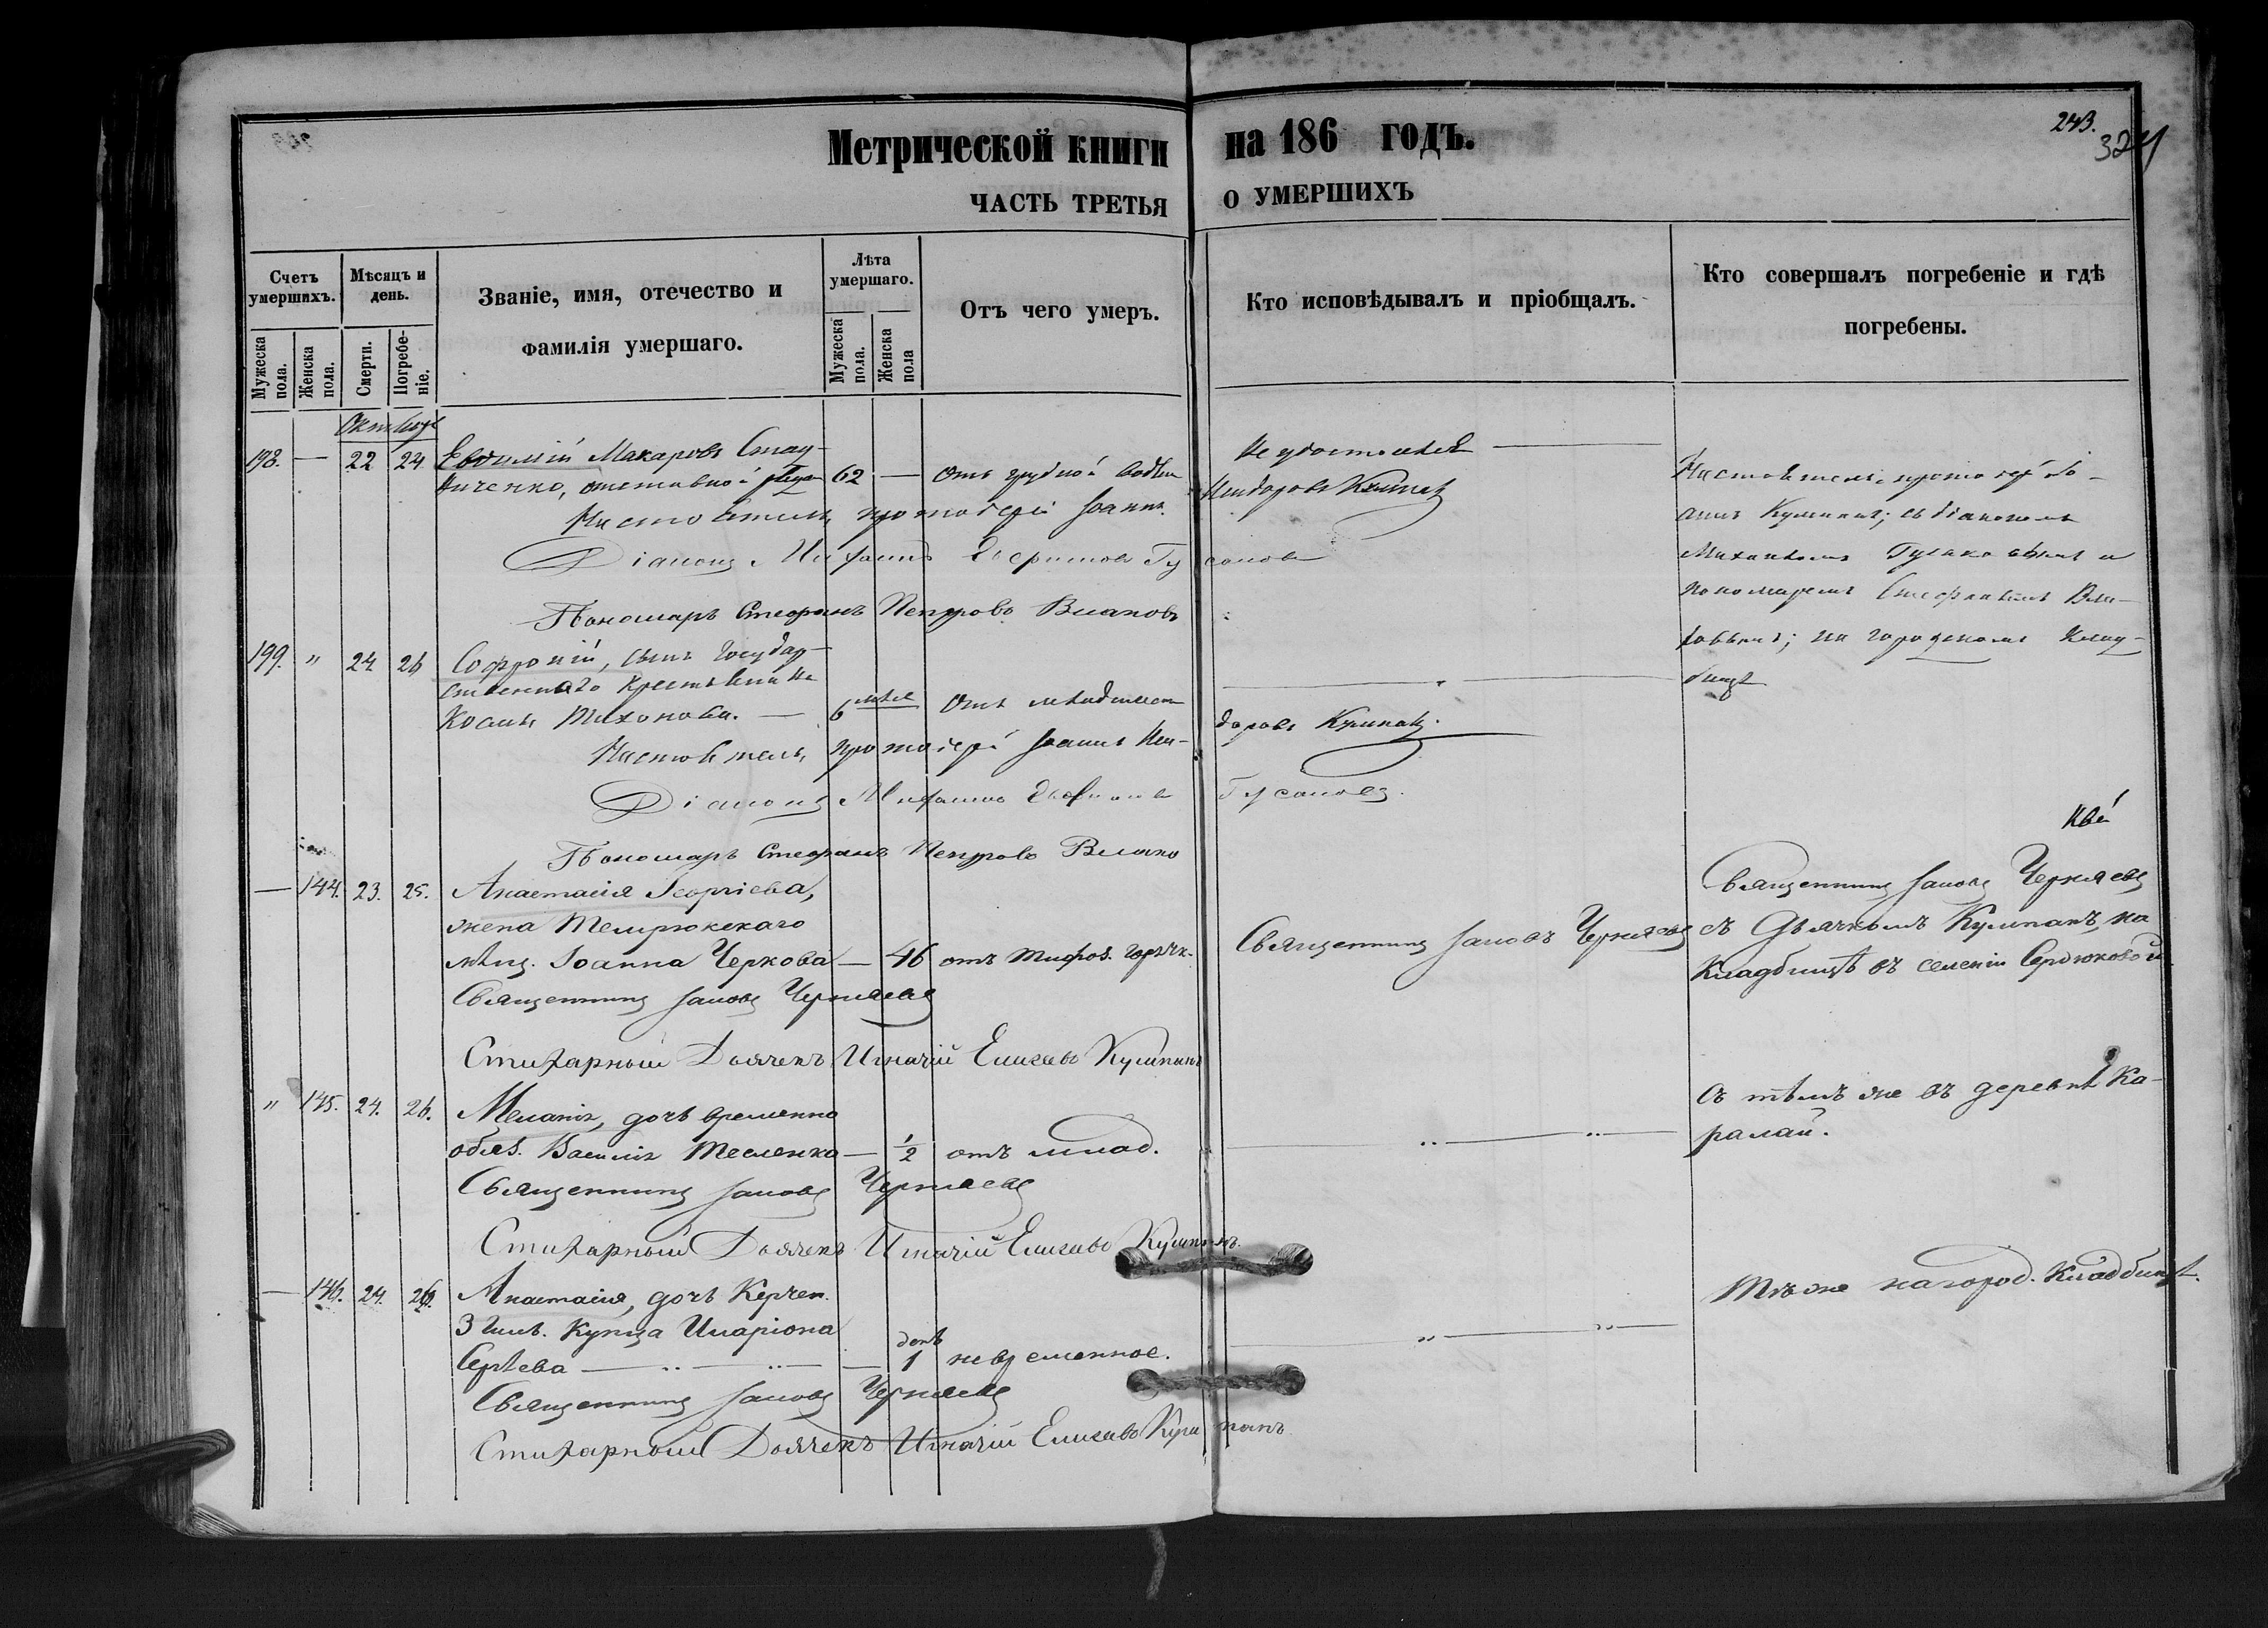 243.
324
Метрической книги на 186 годъ.
ЧАСТЬ ТРЕТЬЯ О УМЕРШИХЪ
Счетъ умершихъ.
Мѣсяцъ и день.
Званіе, имя, отечество и фамилія умершаго.
Лѣта умершаго.
Отъ чего умеръ.
Кто исповѣдывалъ и пріобщалъ.
Кто совершалъ погребеніе и гдѣ погребены.
Мужеска пола.
Женска пола.
Смерти.
Погребеніе.
Мужеска пола.
Женска пола
198. — 22 24 Евѳимій Макаровъ
ниченко, отставной 62 — Отъ грудной
Настоятель протоіерей Іоаннъ
Діаконъ
Пономарь Стефанъ Петровъ Влаховъ
Настоятель протоіерей Іо-
аннъ Кумпанъ; съ діакономъ
Михаиломъ Гусаковымъ и
пономаремъ Стефаномъ Вла-
ховымъ; на городскомъ клад-
бищѣ
199. " 24 26 Софроній, сынъ Государ-
ственнаго крестьянина
Космы Тихонова. — 6 мѣся Отъ
Настоятель протоіерей Іоаннъ
Діаконъ Гусаковъ.
Пономарь Стефанъ Петровъ Влахо
— 144. 23. 25. Анастасія Георгіева,
жена Темрюкскаго
мѣщ. Іоанна Черкова — 46 отъ тифоз. горячк.
Священникъ Іаковъ Черняевъ
Стихарный Дьячекъ Игнатій Елисеевъ Кумпанъ
Священникъ Іаковъ Черняевъ
Священникъ Іаковъ Черняевъ
съ Дьячкомъ Кумпанъ, на
Кладбищѣ въ селеніи Сердюковой
" 145. 24. 26. Меланія, дочь временно
обяз. Василія Тесленка — 1/2 отъ млад.
Священникъ Іаковъ Черняевъ
Стихарный Дьячекъ Игнатій Елисеевъ Кумпанъ.
Съ тѣмъ же въ деревнѣ Ка-
ралай.
— 146. 24. 26. Анастасія, дочь Керчен.
3 гил. Купца Иларіона
Сергѣева — — день 1 невременное.
Священникъ Іаковъ Черняевъ
Стихарный Дьячекъ Игнатій Елисеевъ Кумпанъ
Тѣ же на город. Кладбищѣ.